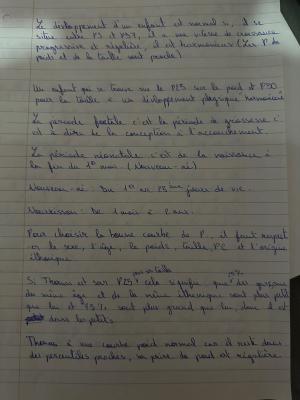 Le développement d'un enfant est normal si, il se
situe entre P3 et P97, il a une vitesse de croissance
progressive et régulière, il est harmonieux (Les P de
poids et de la taille sont proche)
Un enfant qui se trouve sur le P25 sur le poid et P30
pour la taille a un dévloppement physique harmonieux
La periode foetale c'est la période de grossesse c'
est à dire de la conception à l'accouchement.
La période néonatale c'est de la naissance à
la fin du 1er mois (Nouveau-né)
Nouveau-né : Du 1er au 28ème jours de vie.
Nourrisson : De 1 mois à 2 ans.
Pour choisir la bonne courbe de P, il faut respect
-er le sexe, l'âge, le poids, taille, PC et l'origine
éthnique.
Si Thomas est sur P25 pour sa taille cela signifie que 25% des garçons
du même âge et de la même ethnique sont plus petit
que lui et 75% sont plus grand que lui, donc il est
dans les petits
Thomas à une courbe poid normal car il reste dans
des percentiles proches, sa prise de poid est régulière.